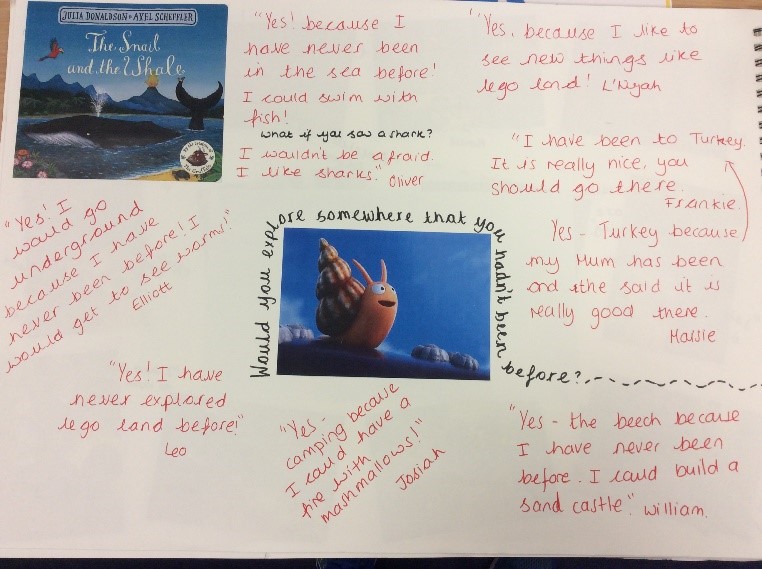 JULIA DONALDSON • AXEL SCHEFFLER
The Snail
and the Whale
"Yes! because I
have never been
in the sea before!
I could swim with
fish!
what if you saw a shark?
I wouldn't be afraid.
I like sharks." Oliver
"Yes, because I like to
see new things like
lego land! L'Nyah
"I have been to Turkey.
It is really nice, you
should go there.
Frankie.
Yes - Turkey because
my Mum has been
and she said it is
really good there.
Maisie
"Yes! I
would go
underground
because I have
never been before! I
would get to see worms!"
Elliott
Would you explore somewhere that you hadn't been before?
"Yes! I have
never explored
lego land before!"
Leo
"Yes -
camping because
I could have a
fire with
mashmallows!"
Josiah
"Yes - the beech because
I have never been
before. I could build a
sand castle." William.